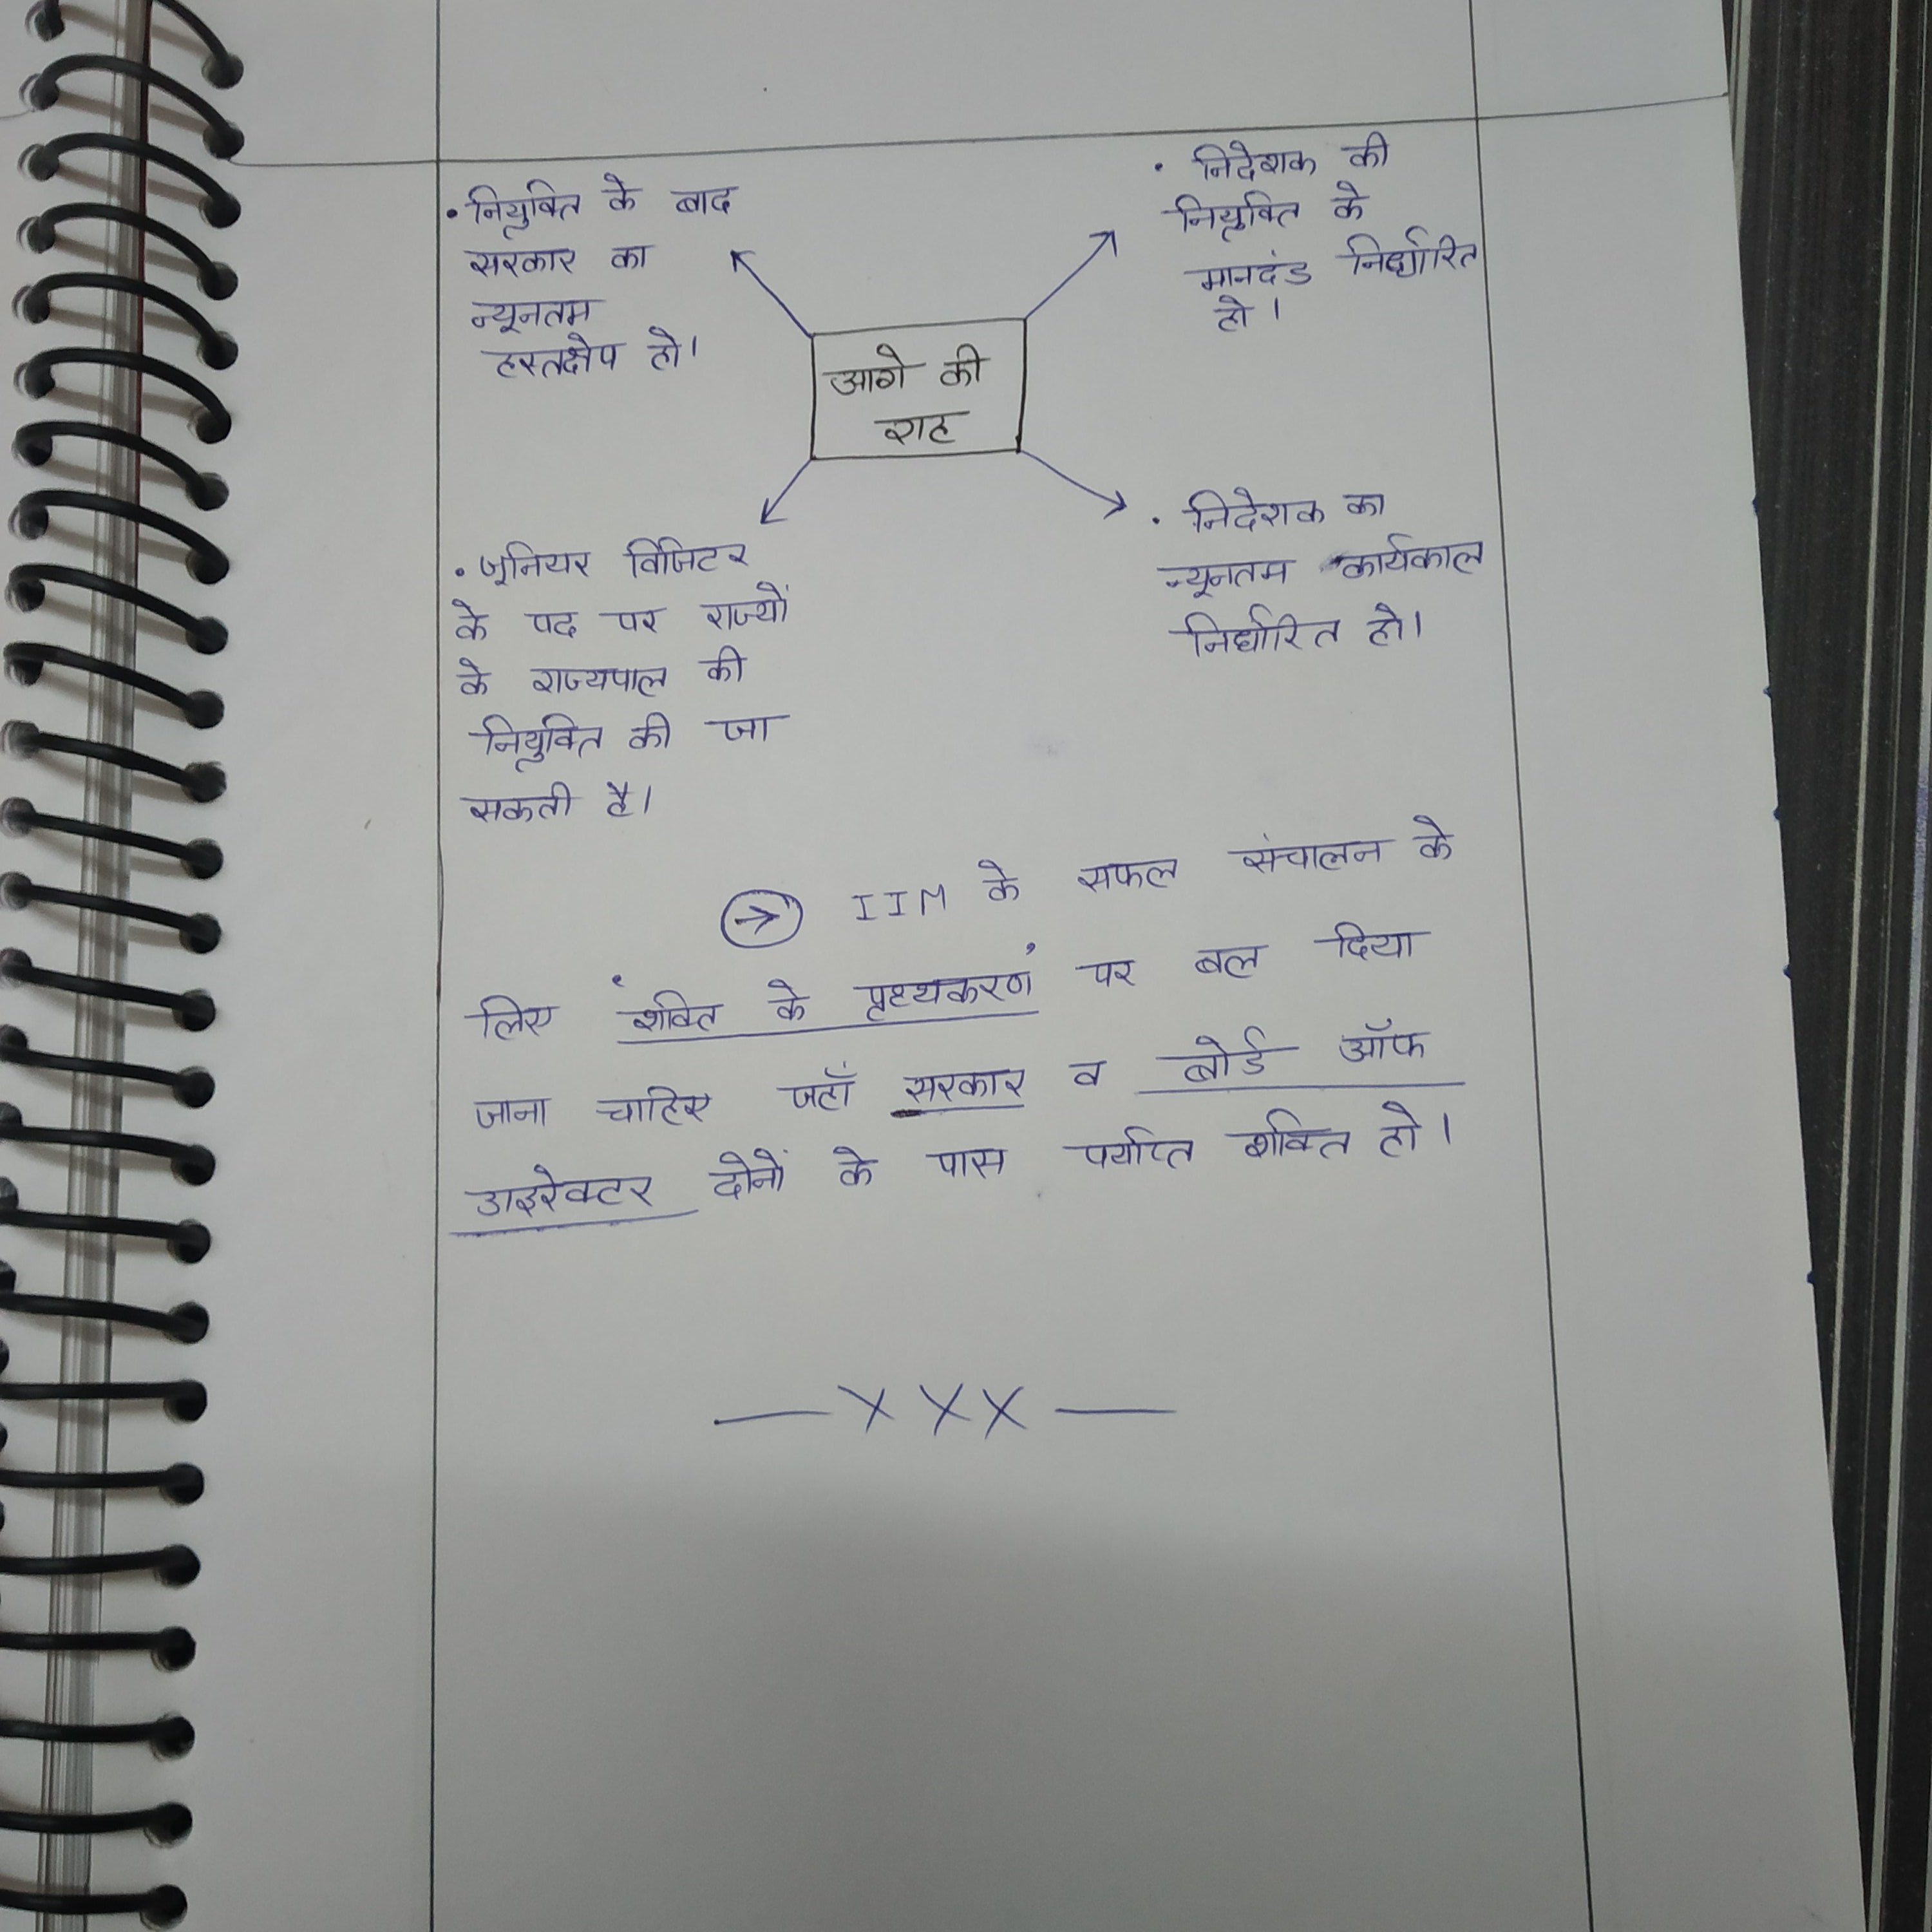 • नियुक्ति के बाद
सरकार का
न्यूनतम
हस्तक्षेप हो।
• निदेशक की
नियुक्ति के
मानदंड निर्धारित
हो।
आगे की
राह
• जूनियर विजिटर
के पद पर राज्यों
के राज्यपाल की
नियुक्ति की जा
सकती है।
• निदेशक का
न्यूनतम कार्यकाल
निर्धारित हो।
→ IIM के सफल संचालन के
लिए 'शक्ति के पृथ्यकरण' पर बल दिया
जाना चाहिए जहाँ सरकार व बोर्ड ऑफ
डाइरेक्टर दोनों के पास पर्याप्त शक्ति हो।
— X X X —